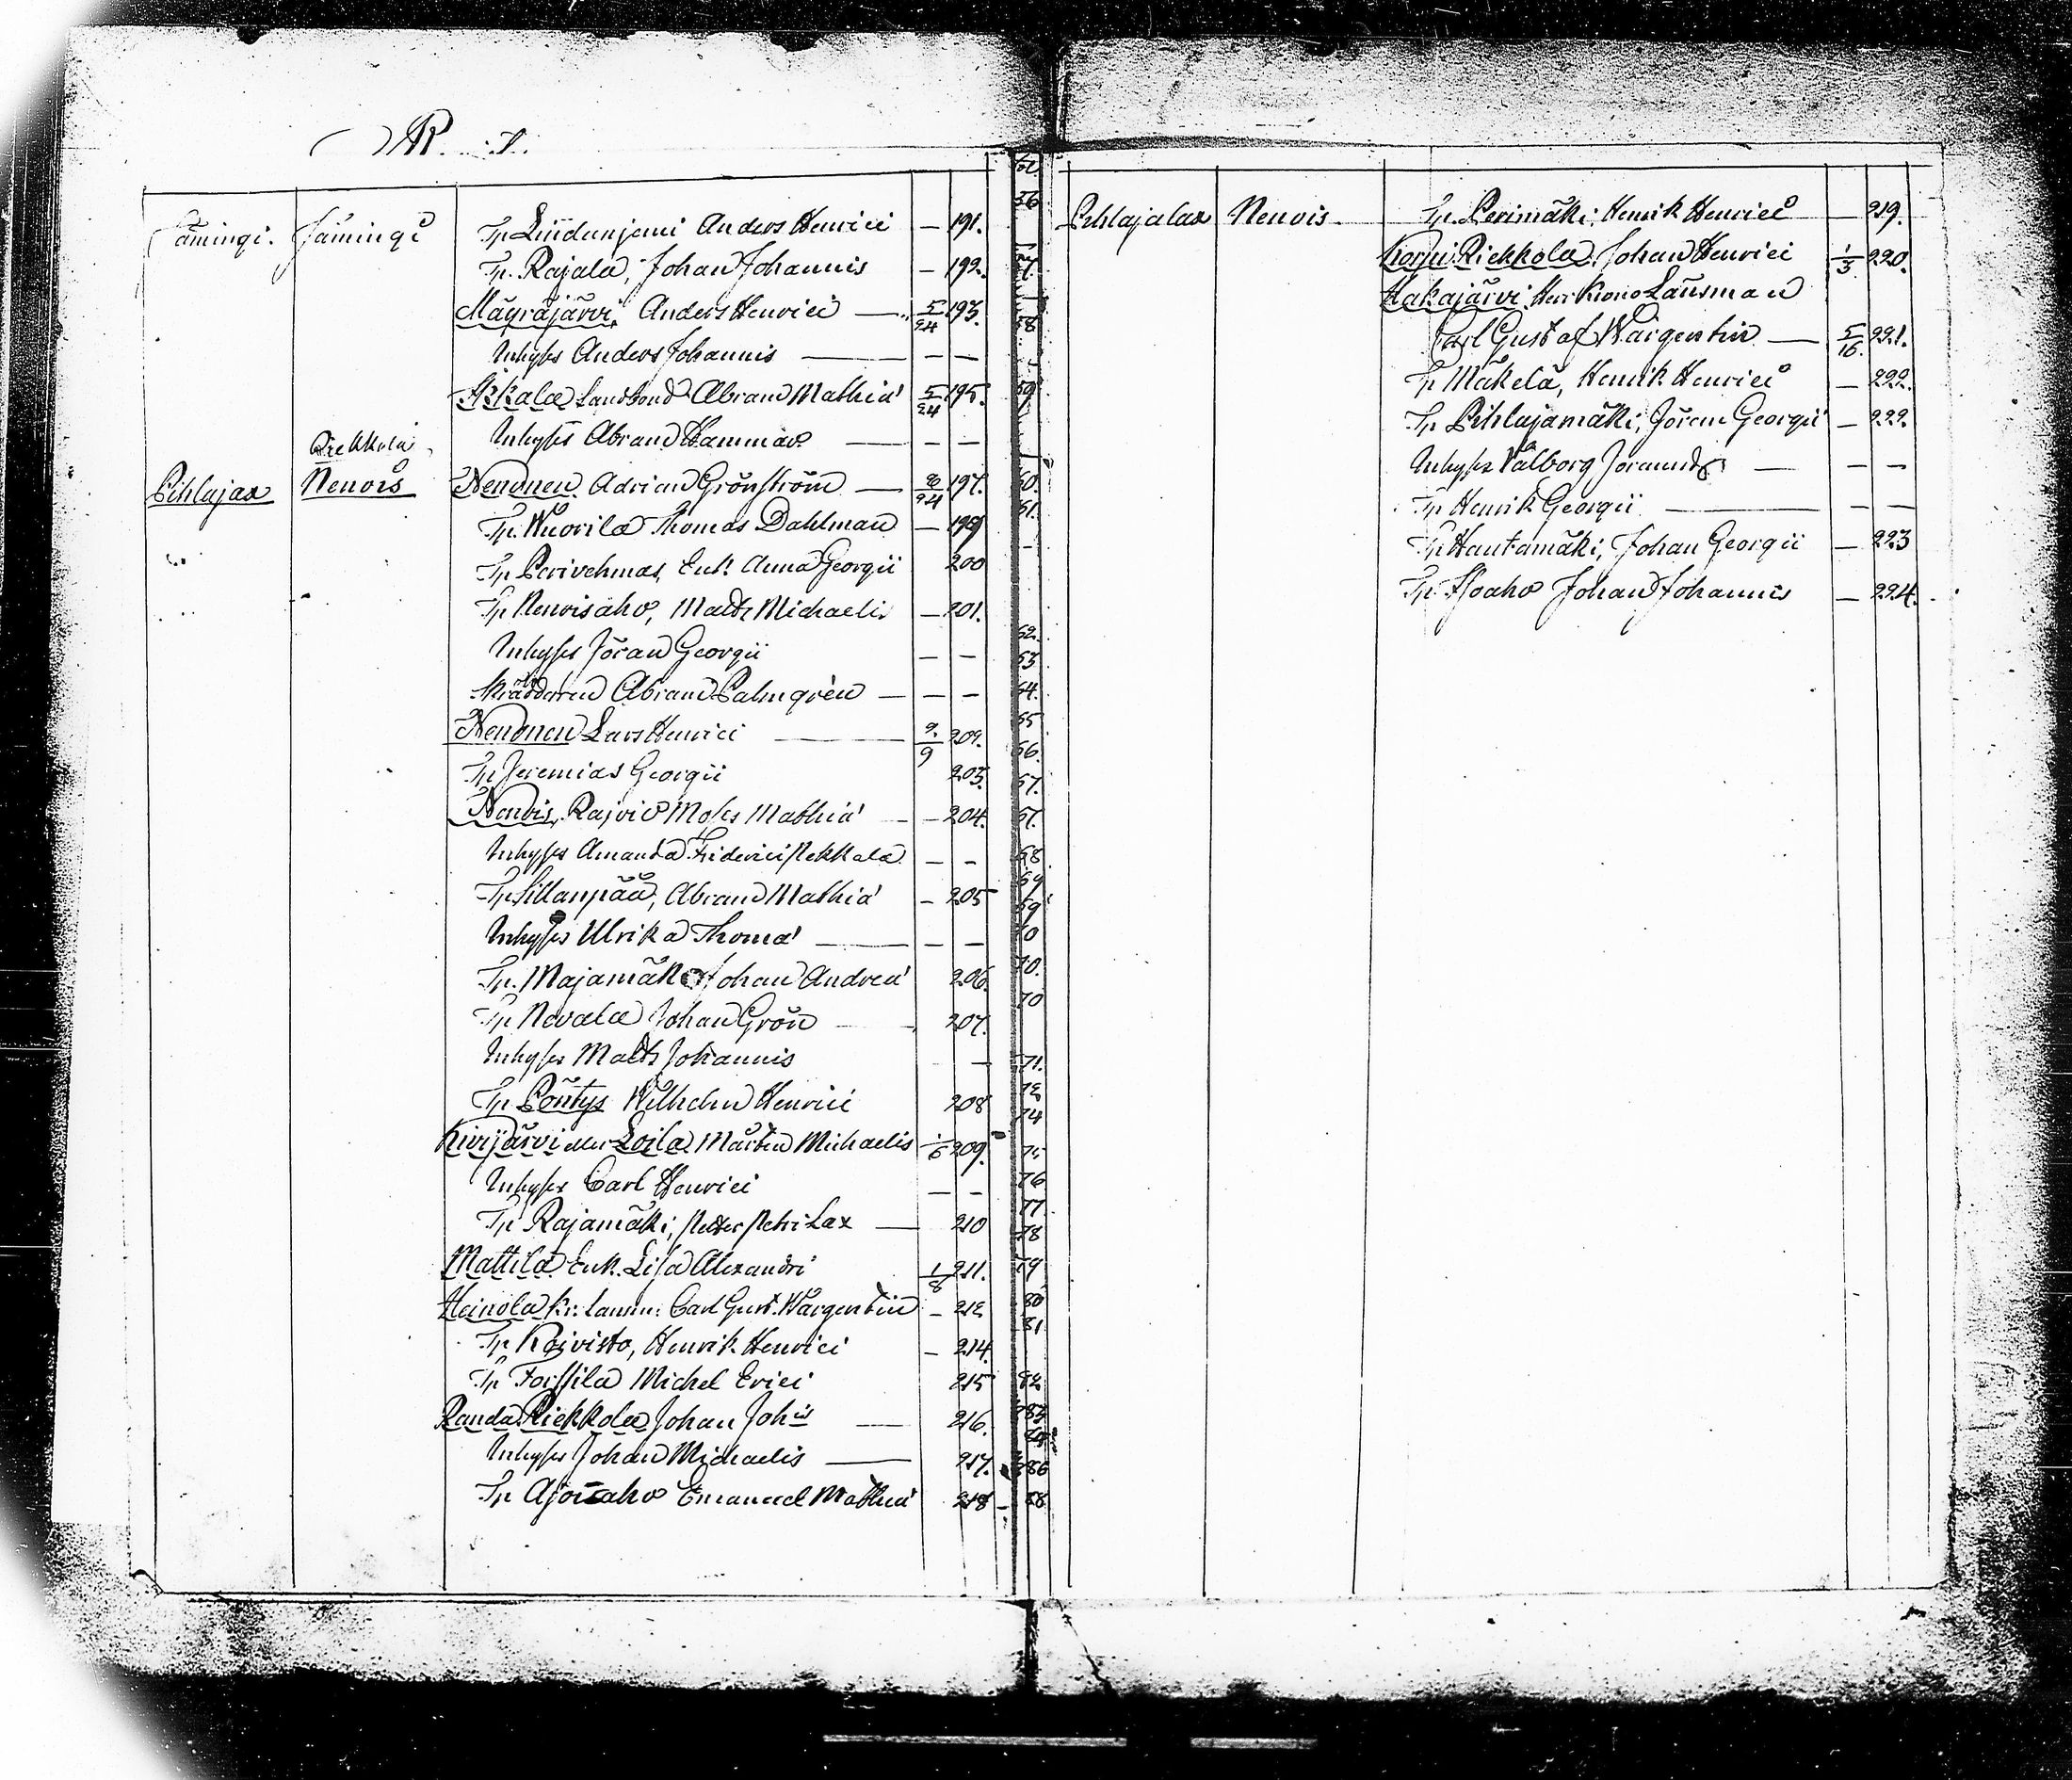 Jämingi. Jämingi Tp Liidenjemi Anders Henrici — 191.
Tp. Rajala, Johan Johannis — 192.
Mäyräjärvi, Anders Henrici — 5/24 193.
Inhyses Anders Johannis — — —
Ikkala Landbond Abram Mathiæ 5/24 195.
Inhyses Abram Hammar — — —
Riekkola
Pihlajax Neuvois Nenonen Adrian Grönström — 197.
Tp. Wuorila Thomas Dahlman — 199
Tp Perivehmas, Enk. Anna Georgii 200
Tp Neuvisaho, Matts Michaelis — 201.
Inhyses Jöran Georgii — —
Skräddaren Abram Palmgrén — — —
Nenonen Lars Henrici — 202.
Tp Jeremias Georgii 203.
Neuvis, Rajvio Moses Mathiæ — 204.
Inhyses Amanda Fiderici Pekkala — —
Tp Sillanpää, Abram Mathiæ — 205
Inhyses Ulrika Thomæ — — —
Tp. Majamäki Johan Andreæ 206.
Tp Nevala Johan Grön — 207.
Inhyses Matts Johannis —
Tp Pöntys Wilhelm Henrici 208
Kivijärvi eller Loila Mårten Michaelis 1/6 209.
Inhyses Carl Henrici — —
Tp Rajamäki, Petter Petri Lax — 210
Mattila Enk. Lisa Alexandri 1/8 211.
Heinola Kr: Länsm: Carl Gust. Wargentin — 212
Tp Koivisto, Henrik Henrici — 214.
Tp Forssila Michel Erici 215
Randa Riekkola Johan Johis — 216.
Inhyses Johan Michaelis — 217.
Tp Ajosaho Emanuel Mathiæ 218
Pihlajalax Neuvois Tp. Perimäki, Henrik Henrici — 219.
Korpi Riekkola, Johan Henrici 1/3 220.
Hakajärvi, Herr Krono Länsman
Carl Gustaf Wargentin — 5/16. 221.
Tp Mäkelä, Henrik Henrici — 222.
Tp Pihlajamäki, Jöran Georgii — 222.
Inhyses Valborg — — —
Tp Henrik Georgii — — —
Tp Hautamäki, Johan Georgii — 223
Tp Isoaho Johan Johannis — 224.